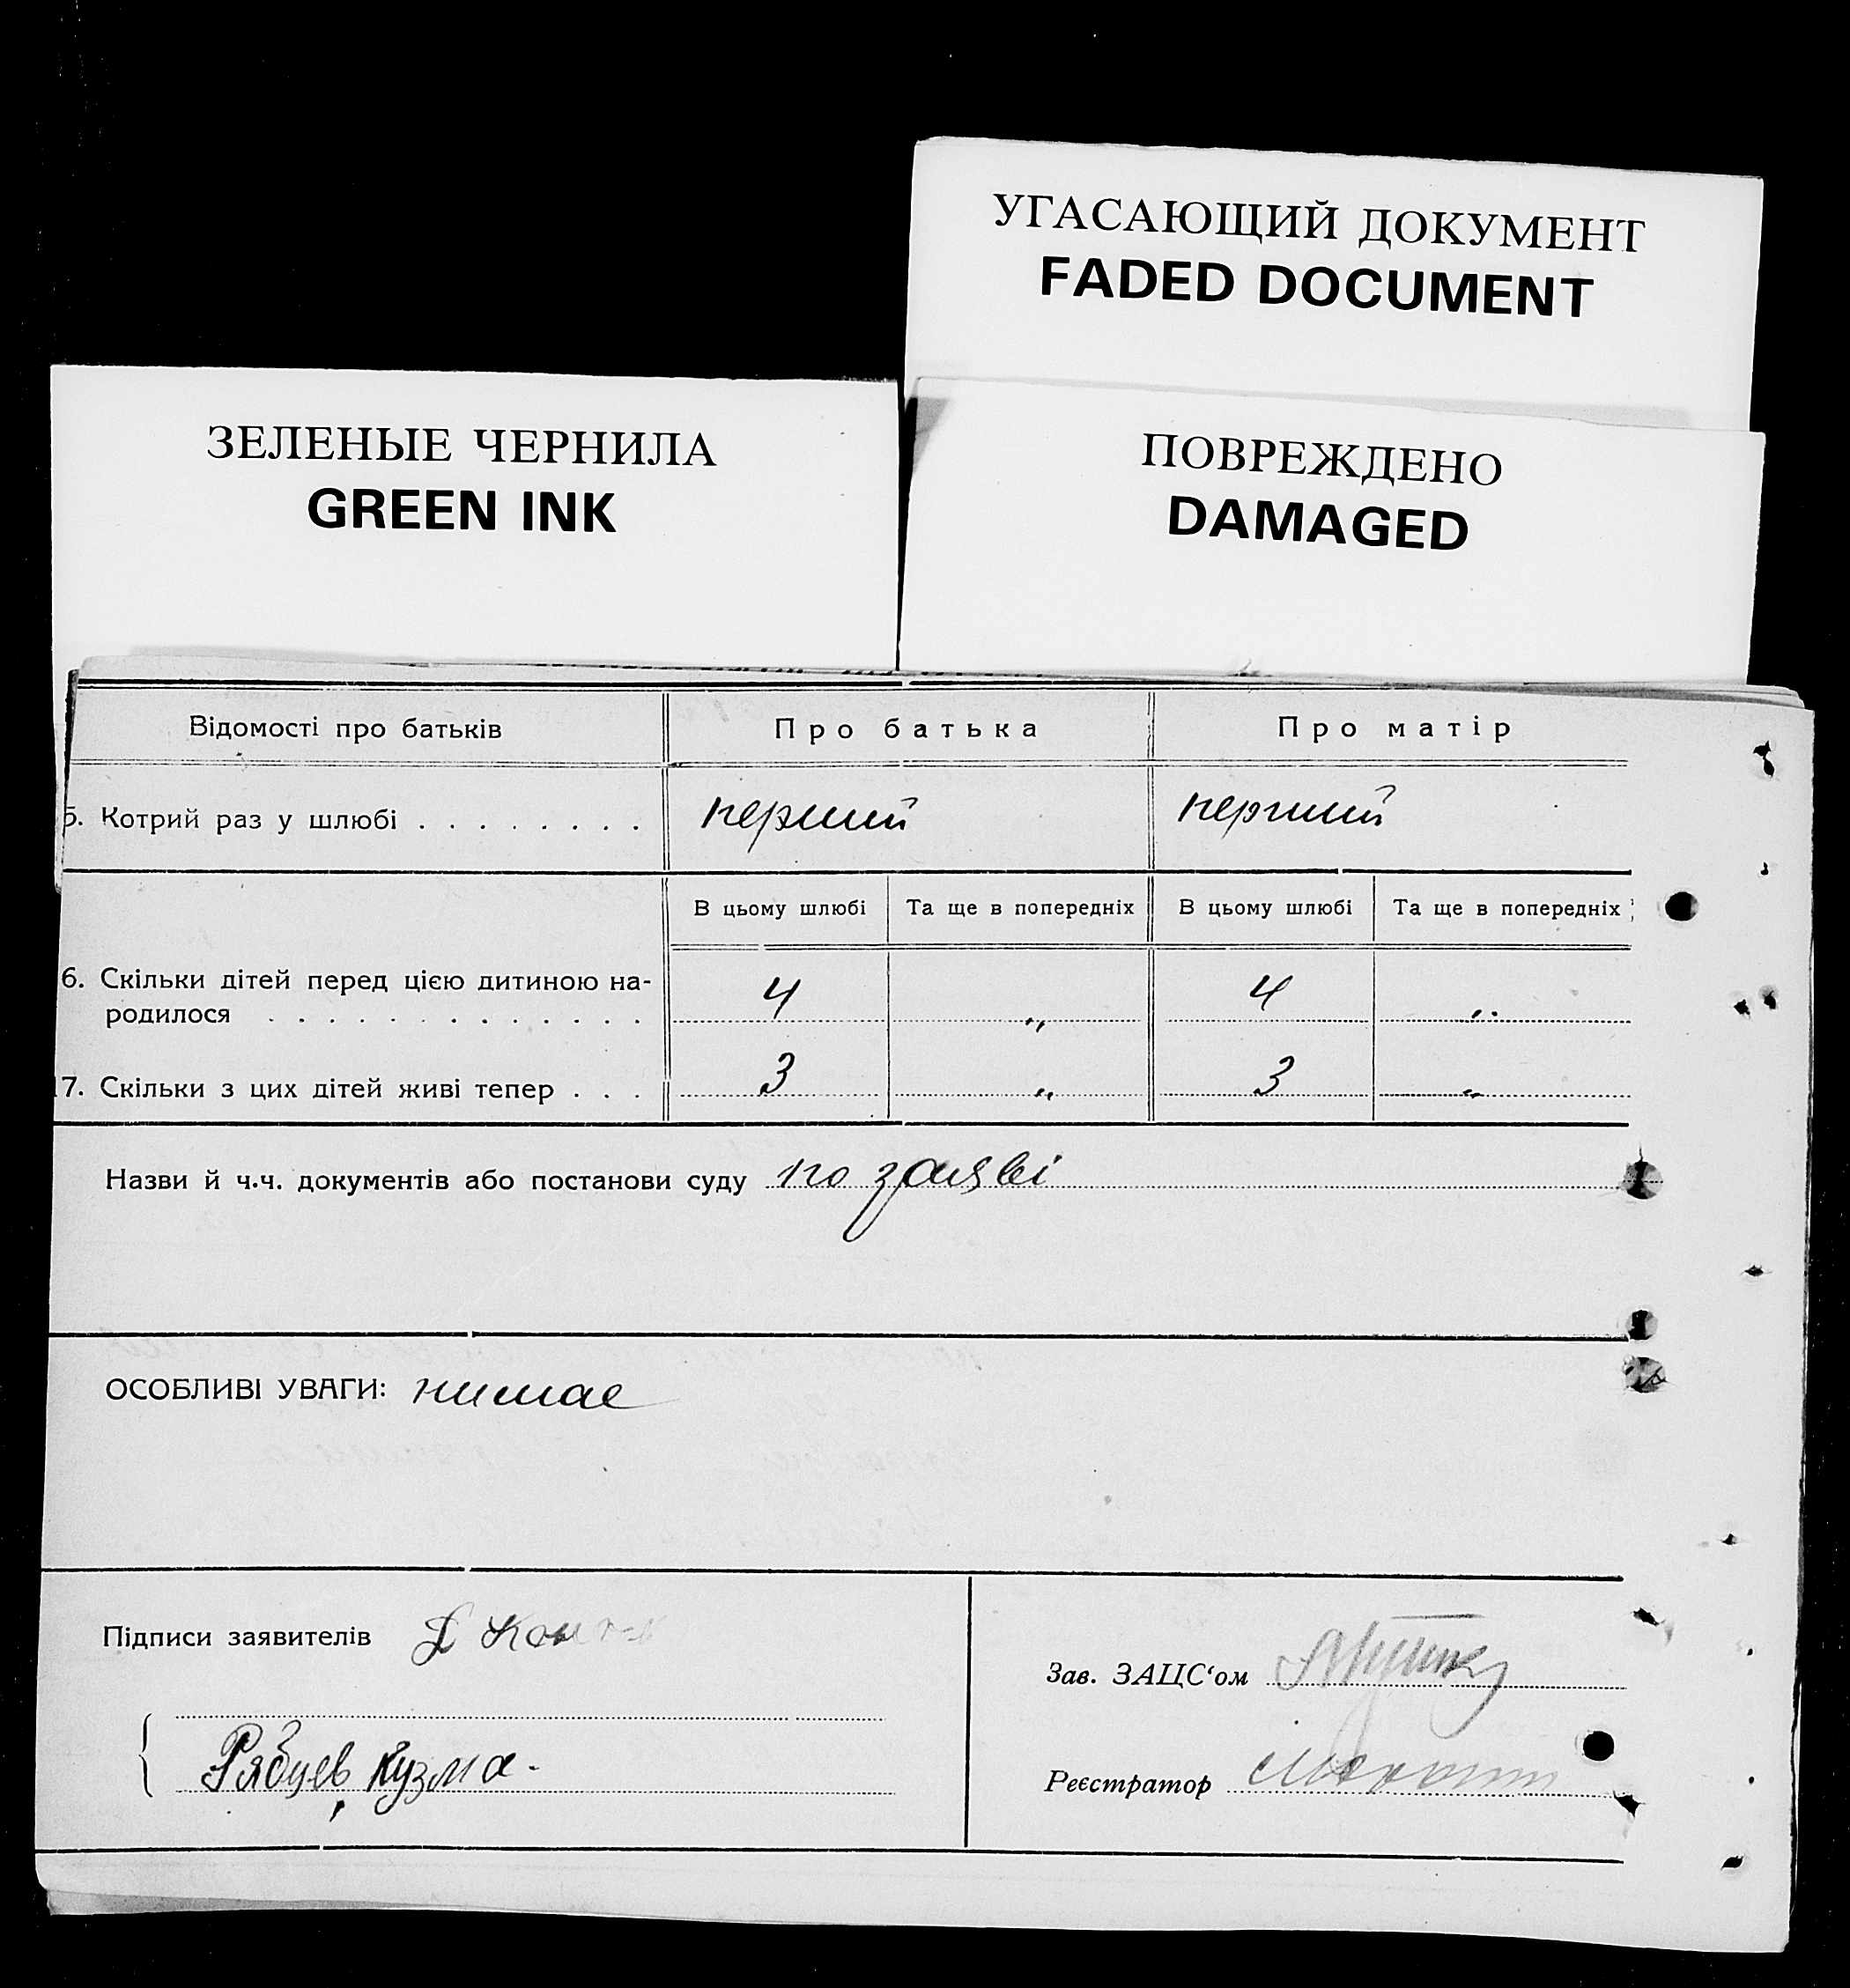 УГАСАЮЩИЙ ДОКУМЕНТ
FADED DOCUMENT
ЗЕЛЕНЫЕ ЧЕРНИЛА
GREEN INK
ПОВРЕЖДЕНО
DAMAGED
Відомості про батьків Про батька Про матір
5. Котрий раз у шлюбі . . . . . . . . перший перший
В цьому шлюбі Та ще в попередніх В цьому шлюбі Та ще в попередніх
6. Скільки дітей перед цією дитиною на-
родилося . . . . . . . . . . . . . 4 „ 4 „
17. Скільки з цих дітей живі тепер . . . 3 „ 3 „
Назви й ч.ч. документів або постанови суду по заяві
ОСОБЛИВІ УВАГИ: нимае
Підписи заявителів
Зав. ЗАЦС‘ом
Рябцев Кузма.
Реєстратор